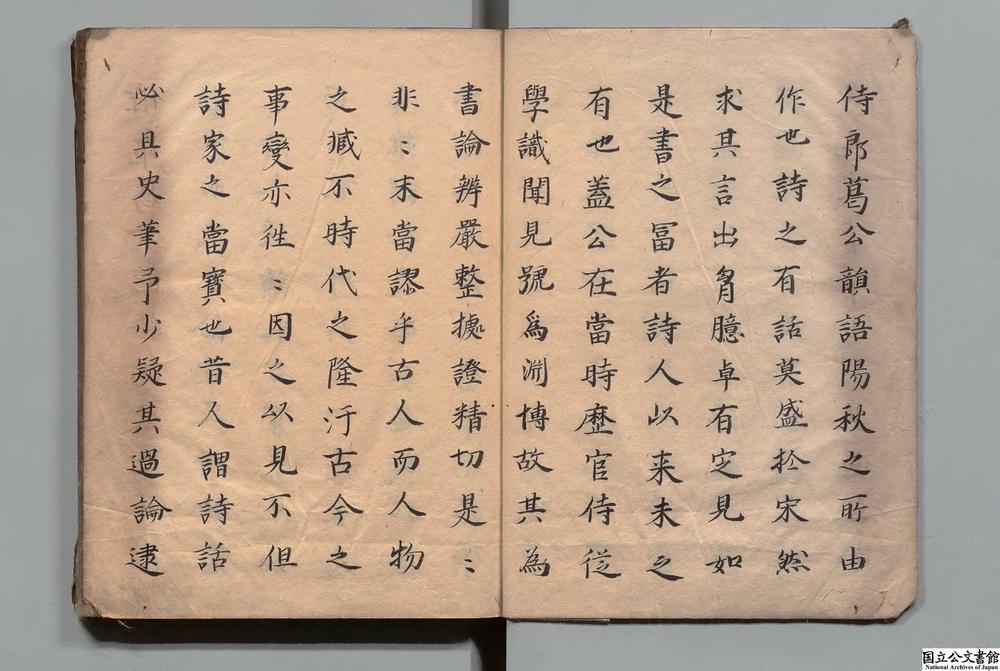 侍郎葛公韻語陽秋之所由
作也詩之有話莫盛於宋然
求其言出胷臆卓有定見如
是書之冨者詩人以来未之
有也蓋公在當時歷官侍從
學識聞見號爲淵博故其為
書論辨嚴整據證精切是〻
非〻末當謬乎古人而人物
之臧不時代之隆汙古今之
事變亦徃〻因之以見不但
詩家之當寳也昔人謂詩話
必具史筆予少疑其過論逮
国立公文書館
National Archives of Japan